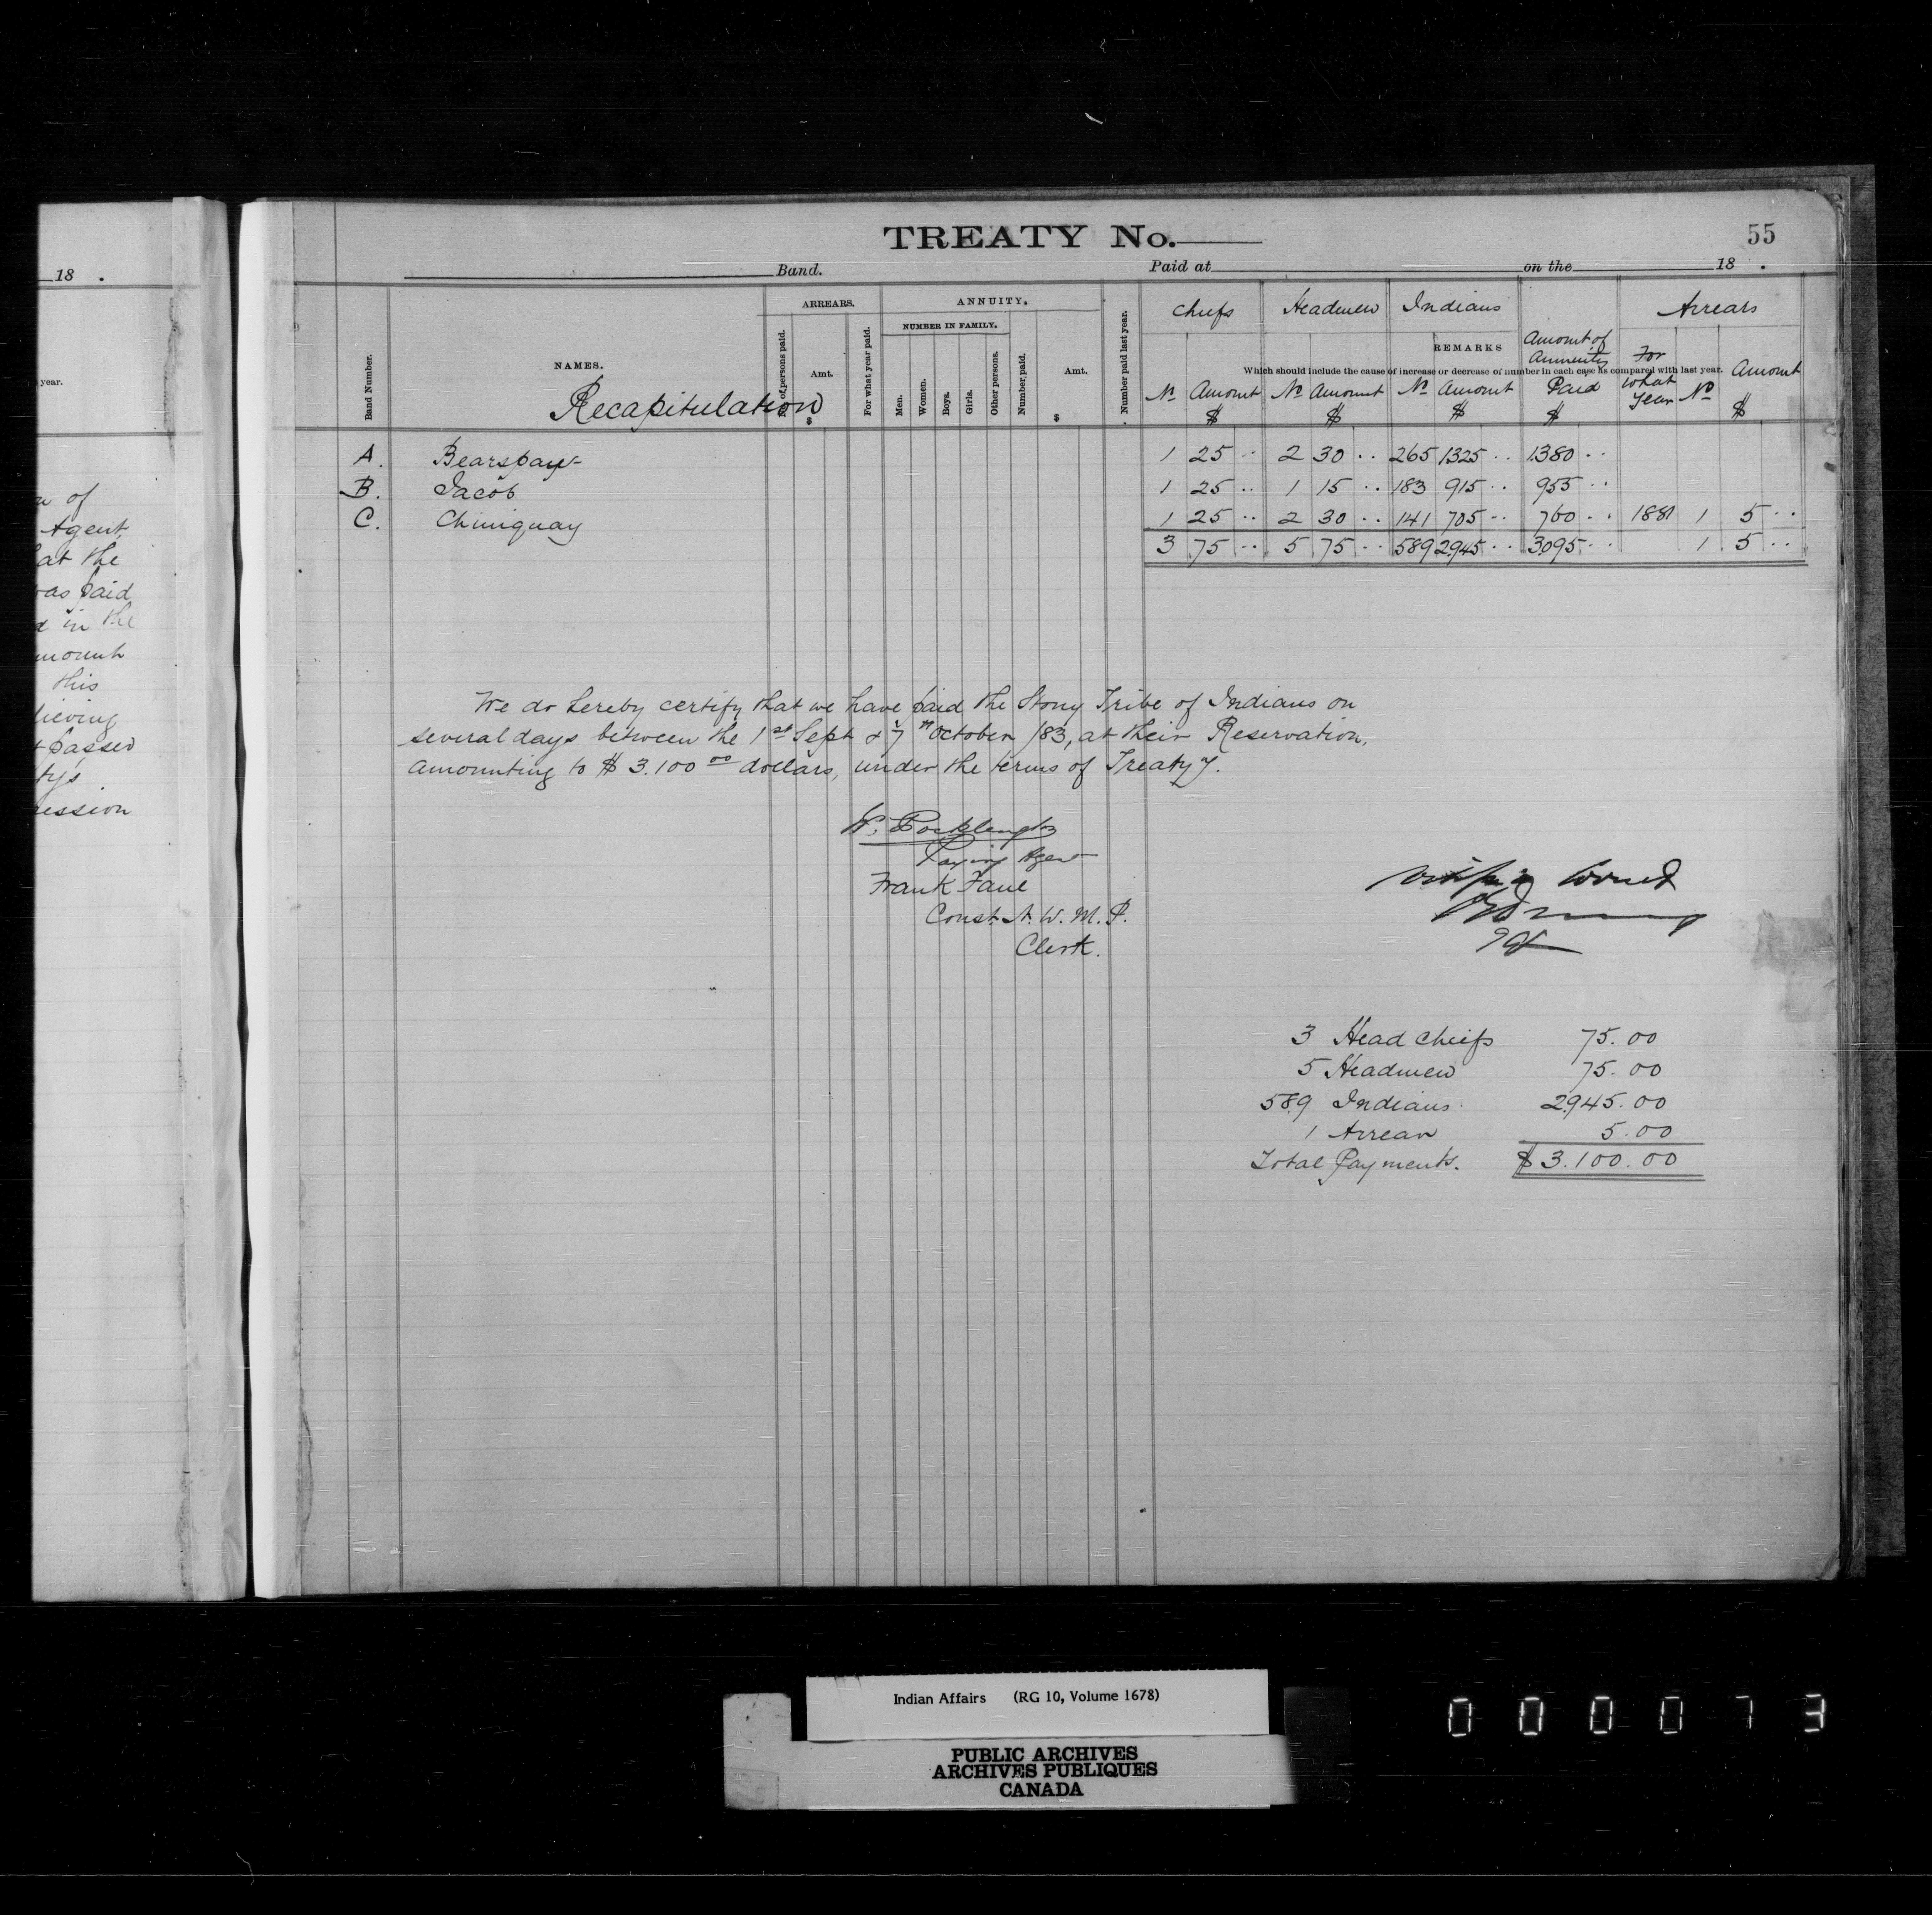 18 .
year.
of
Agent
at the
was paid
in the
amount
this
passed
TREATY No.
55
Band. Paid at on the 18 .
ARREARS. ANNUITY.
NUMBER IN FAMILY.
Band Number. NAMES. No. of persons paid. Amt. $ For what year paid. Men. Women. Boys. Girls. Other persons. Number paid. Amt. $ Number paid last year.
REMARKS
Which should include the cause of increase or decrease of number in each case as compared with last year.
Recapitulation
Chiefs Headmen Indians Amount of Annuity Paid $ Arrears
No Amount $ No Amount $ No Amount $ For what Year No Amount $
A. Bearspaw 1 25 .. 2 30 .. 265 1325 .. 1380 ..
B. Jacob 1 25 .. 1 15 .. 183 915 .. 955 ..
C. Chiniquay 1 25 .. 2 30 .. 141 705 .. 760 .. 1881 1 5 ..
3 75 .. 5 75 .. 589 2945 .. 3095 .. 1 5 ..
We do hereby certify that we have paid the Stony Tribe of Indians on
several days between the 1st Sept & 7th October /83, at their Reservation,
amounting to $ 3.100 00 dollars, under the terms of Treaty 7.
W. Pocklington
Paying Agent
Frank Fane
Const. N. W. M. P.
Clerk.
3 Head Chiefs 75.00
5 Headmen 75.00
589 Indians 2945.00
1 Arrear 5.00
Total Payments. $ 3.100.00
Indian Affairs (RG 10, Volume 1678)
PUBLIC ARCHIVES
ARCHIVES PUBLIQUES
CANADA
000073